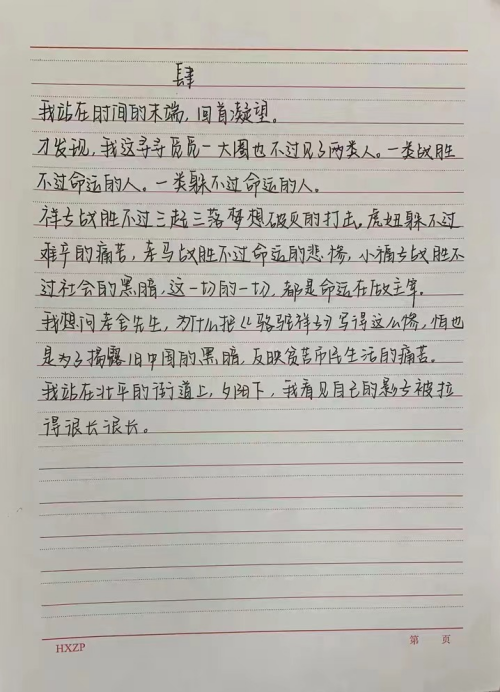 肆
我站在时间的末端，回首凝望。
才发现，我这寻寻觅觅一大圈也不过见了两类人。一类战胜
不过命运的人。一类躲不过命运的人。
祥子战胜不过三起三落梦想破灭的打击。虎妞躲不过
难产的痛苦，老马战胜不过命运的悲惨，小福子战胜不
过社会的黑暗，这一切的一切，都是命运在做主宰。
我想问老舍先生，为什么把《骆驼祥子》写得这么惨，怕也
是为了揭露旧中国的黑暗，反映贫苦市民生活的痛苦。
我站在北平的街道上，夕阳下，我看见自己的影子被拉
得很长很长。
HXZP 第 页